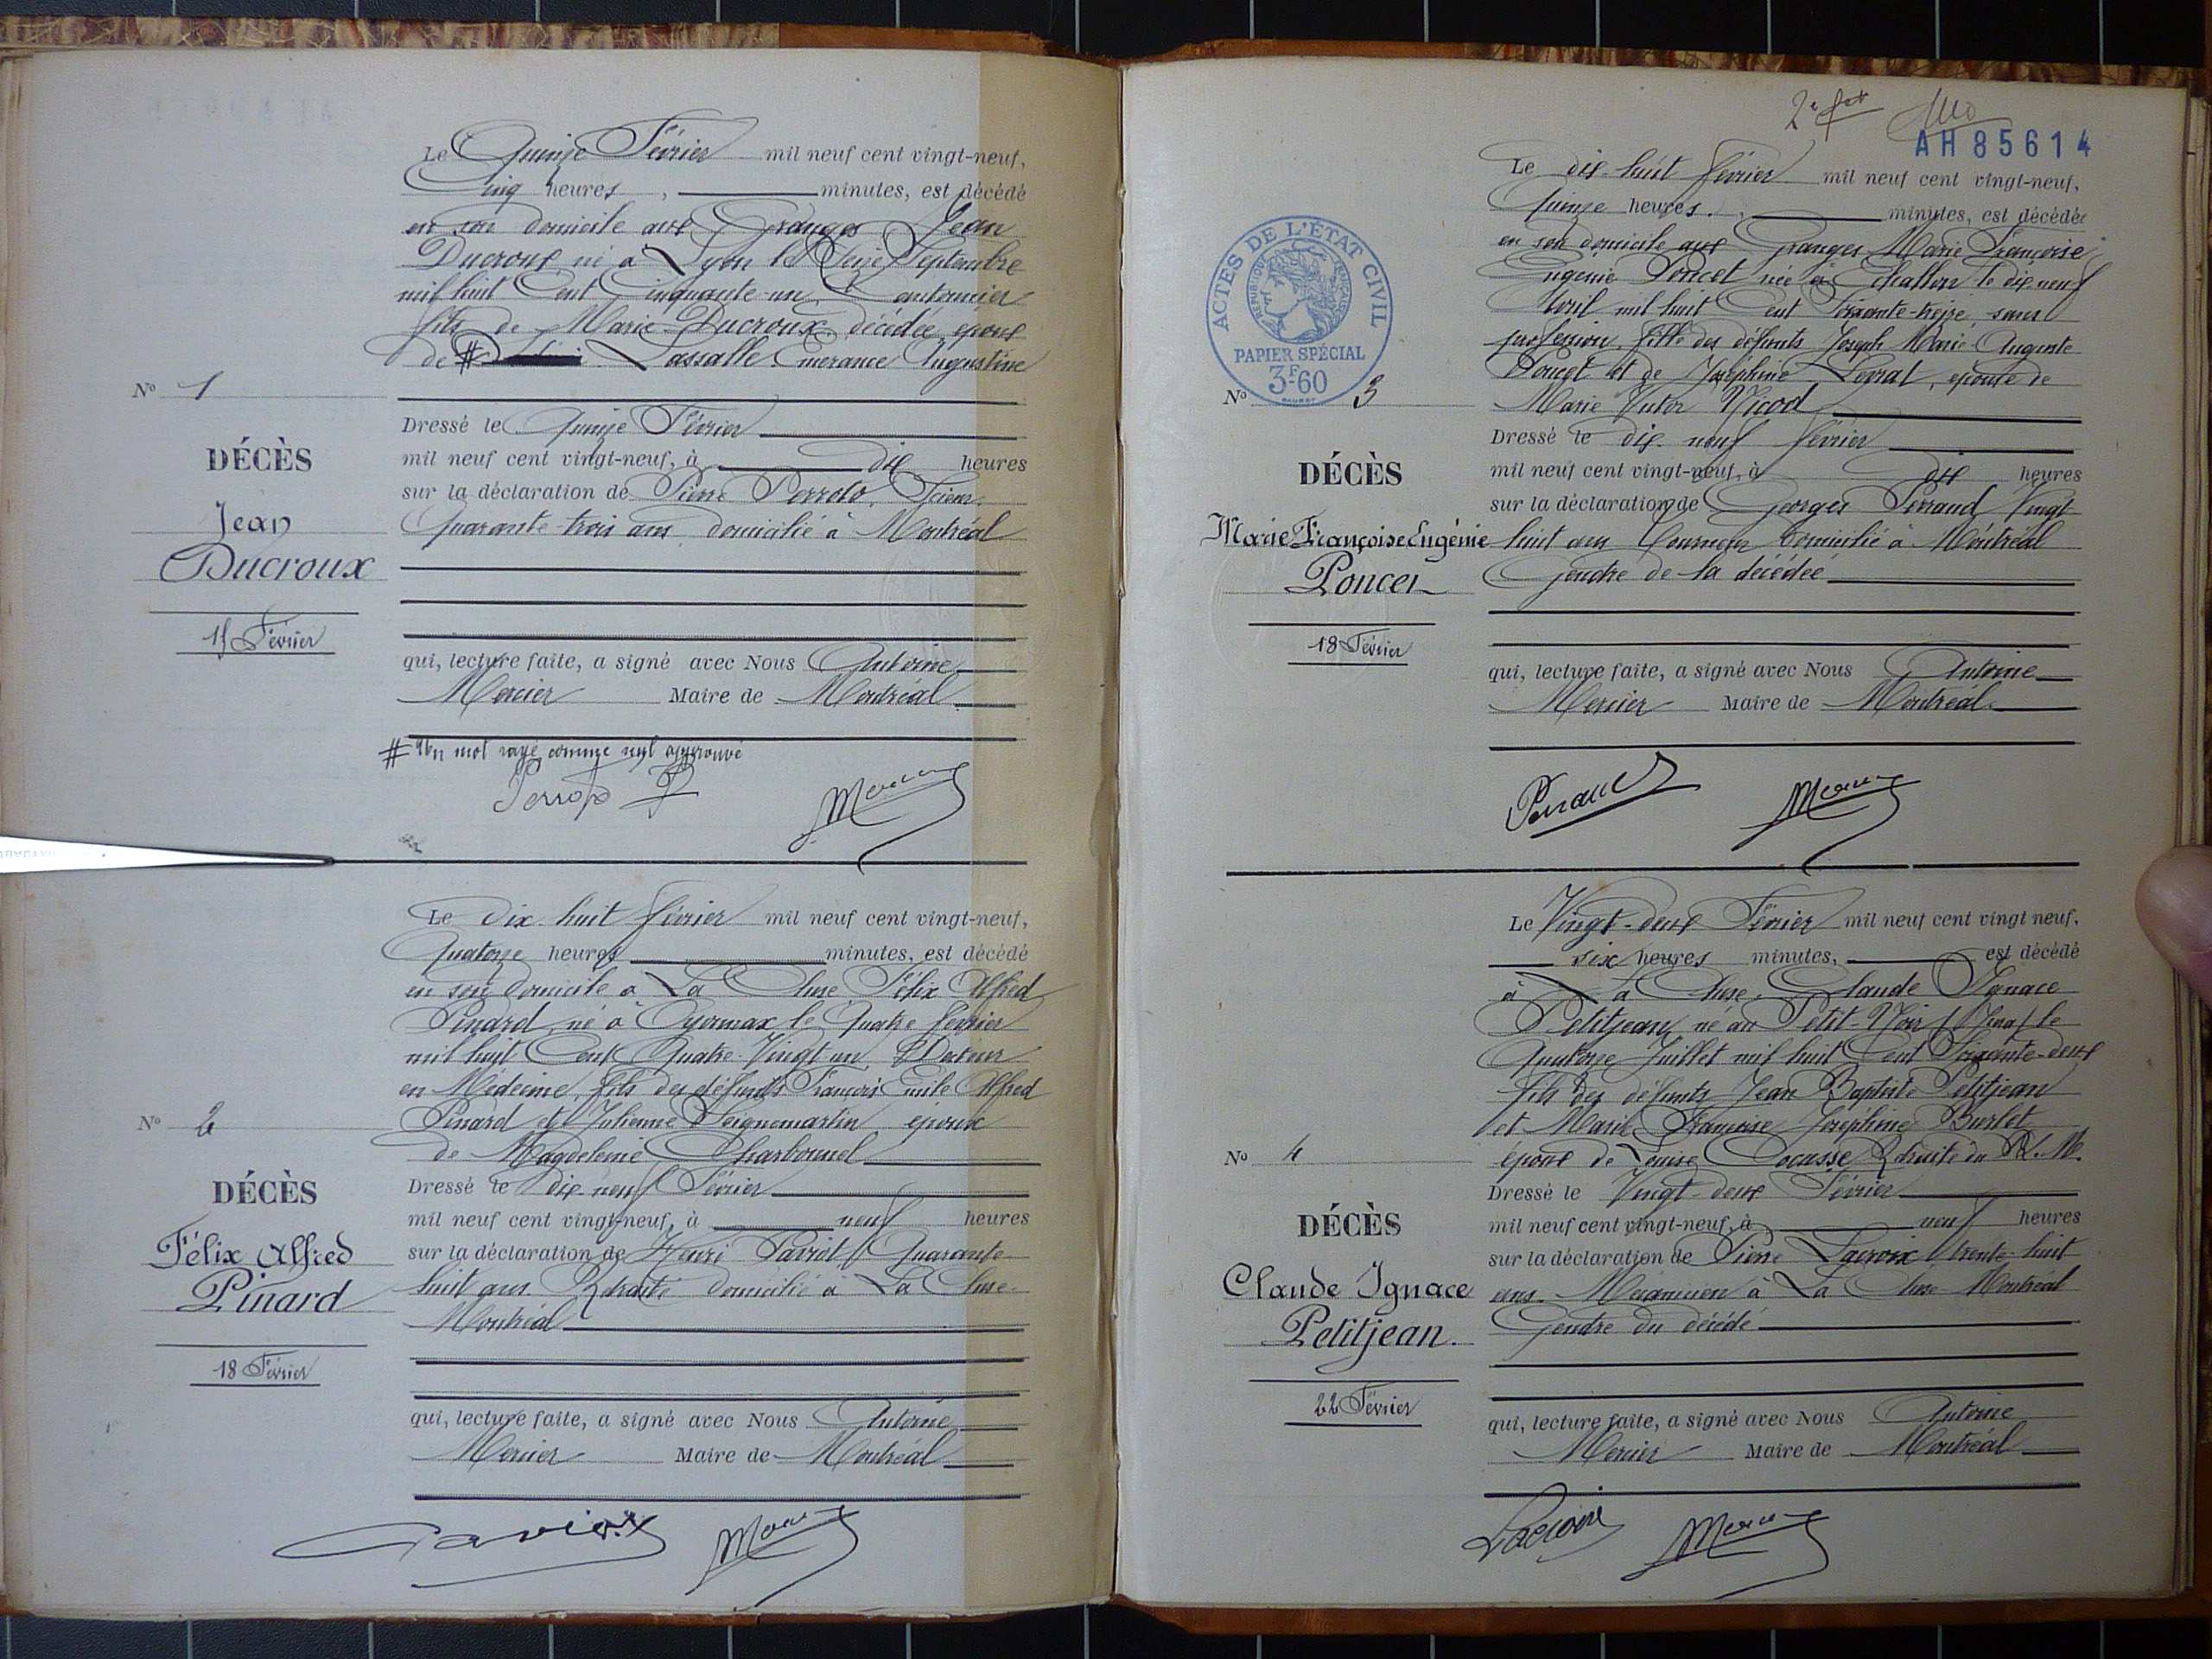 Le Quinze Février mil neuf cent vingt-neuf,
Cinq heures, minutes, est décédé
en son domicile aux Granges Jean
Ducroux né à Lyon le Seize Septembre
mil huit Cent Cinquante-un, Cantonnier
fils de Marie Ducroux décédée, époux
de # Lassalle Emerance Augustine
N° 1
DÉCÈS
Jean
Ducroux
15 Février
Dressé le Quinze Février
mil neuf cent vingt-neuf, à dix heures
sur la déclaration de Pierre, Scieur,
Quarante-trois ans, domicilié à Montréal
qui, lecture faite, a signé avec Nous Antoine
Mercier Maire de Montréal
# Un mot rayé comme nul approuvé
Mercier
Le dix-huit février mil neuf cent vingt-neuf,
Quatorze heures minutes, est décédé
en son domicile à La Cluse Félix Alfred
Pinard, né à Oyonnax le Quatre février
mil huit Cent Quatre-Vingt un Docteur
en Médecine, fils des défunts François Emile Alfred
Pinard et Julienne Seignemartin, époux
de Magdeleine Charbonnel
N° 2
DÉCÈS
Félix Alfred
Pinard
18 Février
Dressé le dix-neuf Février
mil neuf cent vingt-neuf, à neuf heures
sur la déclaration de Henri Quarante
huit ans Retraité domicilié à La Cluse
Montréal
qui, lecture faite, a signé avec Nous Antoine
Mercier Maire de Montréal
Mercier
AH 85614
ACTES DE L'ÉTAT CIVIL
RÉPUBLIQUE FRANÇAISE
PAPIER SPÉCIAL
3F60
Le dix-huit février mil neuf cent vingt-neuf,
Quinze heures, minutes, est décédée
en son domicile aux Granges Marie Françoise
Eugénie Poncet née à Echallon le dix neuf
Avril mil huit Cent Soixante-treize, sans
profession fille des défunts Joseph Marie Auguste
Poncet et de Joséphine Levrat, épouse de
Marie Victor Nicod
N° 3
DÉCÈS
Marie Françoise Eugénie
Poncet
18 Février
Dressé le dix-neuf février
mil neuf cent vingt-neuf, à dix heures
sur la déclaration de Georges Perraud Vingt
huit ans Tourneur domicilié à Montréal
Gendre de la décédée
qui, lecture faite, a signé avec Nous Antoine
Mercier Maire de Montréal
Perraud
Mercier
Le Vingt-deux Février mil neuf cent vingt neuf,
six heures minutes, est décédé
à La Cluse, Claude Ignace
Petitjean, né au Petit-Noir (Jura) le
Quatorze Juillet mil huit Cent Soixante-deux
fils des défunts Jean Baptiste Petitjean
et Marie Françoise Joséphine Burlet
époux de Louise Cocasse Retraité du P.L.M.
N° 4
DÉCÈS
Claude Ignace
Petitjean
22 Février
Dressé le Vingt-deux Février
mil neuf cent vingt-neuf, à neuf heures
sur la déclaration de Pierre Lacroix trente-huit
ans Mécanicien à La Cluse Montréal
Gendre du décédé
qui, lecture faite, a signé avec Nous Antoine
Mercier Maire de Montréal
Lacroix
Mercier